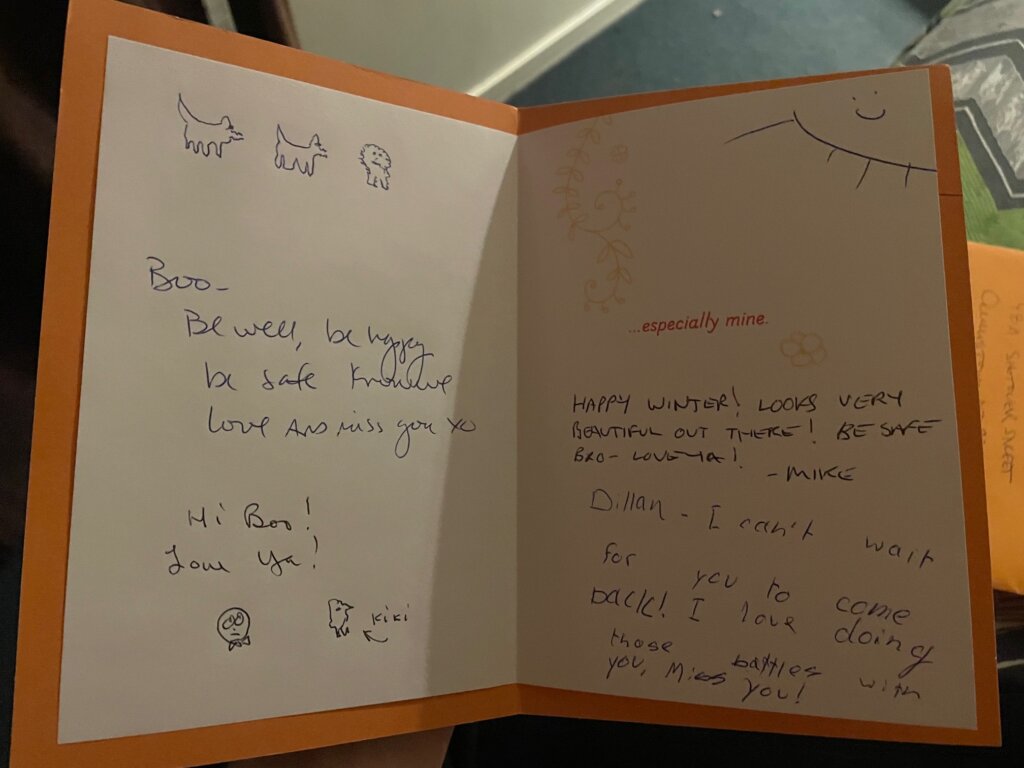 Boo-
Be well, be happy
be safe Know we
love and miss you xo
Hi Boo!
Love Ya!
KiKi
...especially mine.
HAPPY WINTER! LOOKS VERY
BEAUTIFUL OUT THERE! BE SAFE
BRO- LOVE YA!
-MIKE
Dillan - I can't wait
for you to come
back! I love doing
those battles with
you, Miss you!